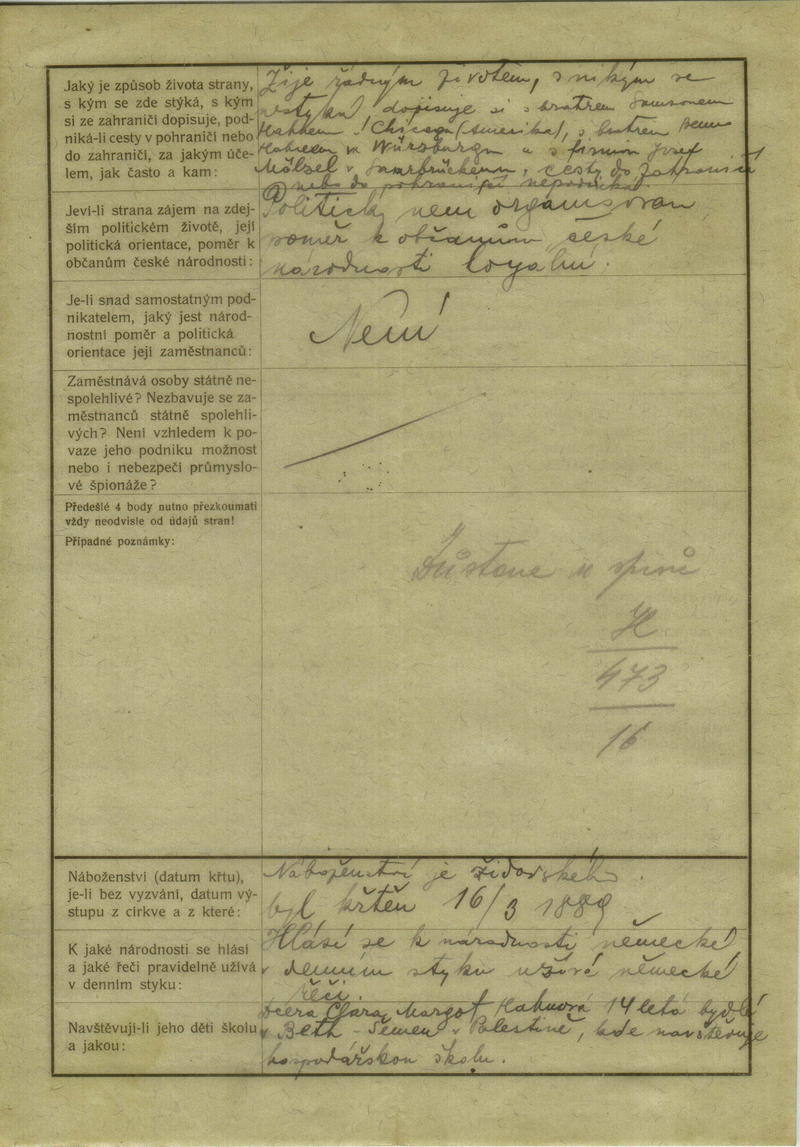 Jaký je způsob života strany,
s kým se zde stýká, s kým
si ze zahraničí dopisuje, pod-
niká-li cesty v pohraničí nebo
do zahraničí, za jakým úče-
lem, jak často a kam:
Žije řádným životem, s nikým se
nestýká dopisuje si s bratrem Samsonem
Hahnem Chicago (Amerika), s bratrem
Hahnem ve Würzburgu a s firmou Josef
v Saarbrückenu, cesty do zahraničí
nebo do pohraničí nepodniká
Jeví-li strana zájem na zdej-
ším politickém životě, její
politická orientace, poměr k
občanům české národnosti:
Politicky není organisován
poměr k občanům české
národnosti loyalní.
Je-li snad samostatným pod-
nikatelem, jaký jest národ-
nostní poměr a politická
orientace její zaměstnanců:
Není
Zaměstnává osoby státně ne-
spolehlivé? Nezbavuje se za-
městnanců státně spolehli-
vých? Není vzhledem k po-
vaze jeho podniku možnost
nebo i nebezpečí průmyslo-
vé špionáže?
Předešlé 4 body nutno přezkoumati
vždy neodvisle od údajů stran!
Případné poznámky:
Zůstane u spisů
H
473
16
Náboženství (datum křtu),
je-li bez vyzvání, datum vý-
stupu z církve a z které:
Náboženství je židovského.
byl křtěn 16/3 1889
K jaké národnosti se hlásí
a jaké řeči pravidelně užívá
v denním styku:
Hlásí se k národnosti německé
v denním styku užívá německé
řeči.
Navštěvují-li jeho děti školu
a jakou:
Dcera Clara Margot Hahnová 14 letá bydlí
v Beth-Semen v Palestině, kde navštěvuje
hospodářskou školu.